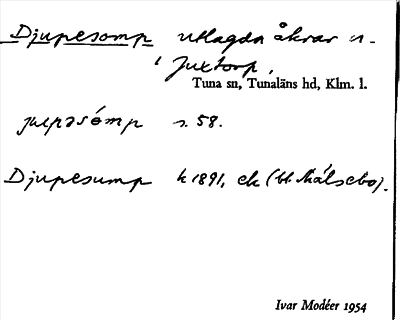 Djupesomp utlagda åkrar n.
i Juxtorp,
Tuna sn, Tunaläns hd, Klm. l.
s. 58.
Djupesump k 1891, ek (bl. Målsebo).
Ivar Modéer 1954